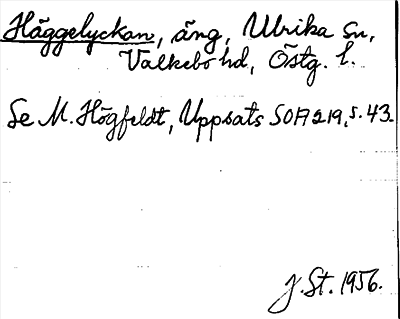 Häggelyckan, äng, Ulrika sn,
Valkebo hd, Östg. l.
Se M. Högfeldt, Uppsats SOFI 219, s. 43.
J. St. 1956.